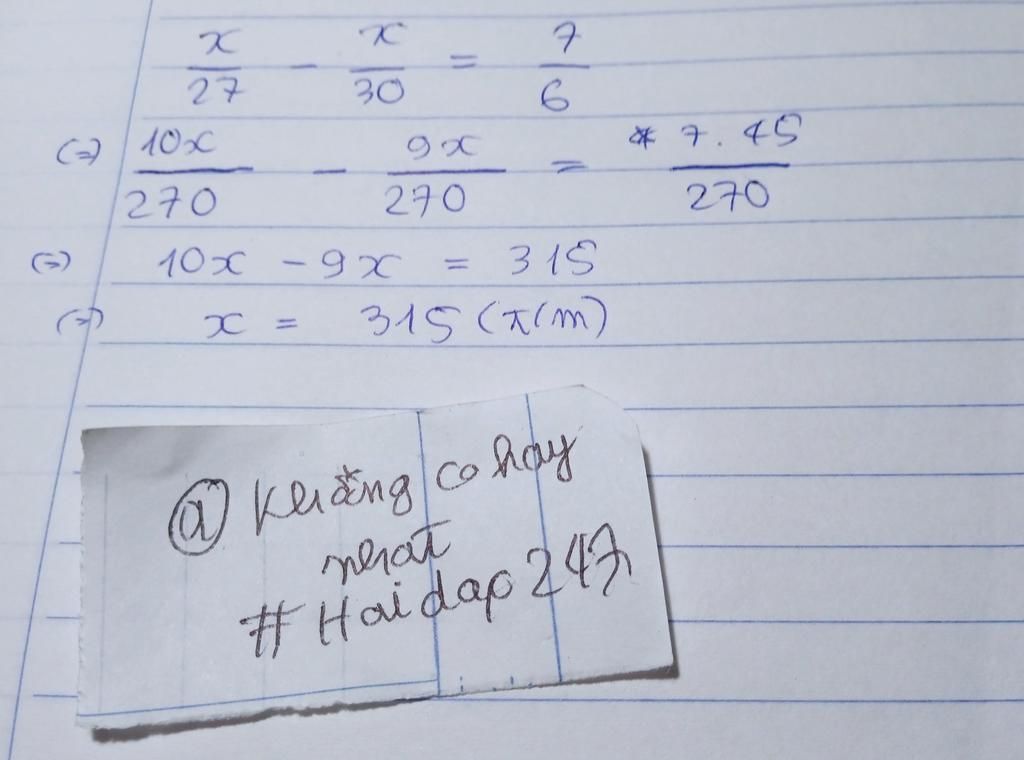 x/27 - x/30 = 7/6
(=) 10x/270 - 9x/270 = 7.45/270
(=) 10x - 9x = 315
(=) x = 315 (t/m)
@ Khăng co hay
nhat
# Hoi dap 247